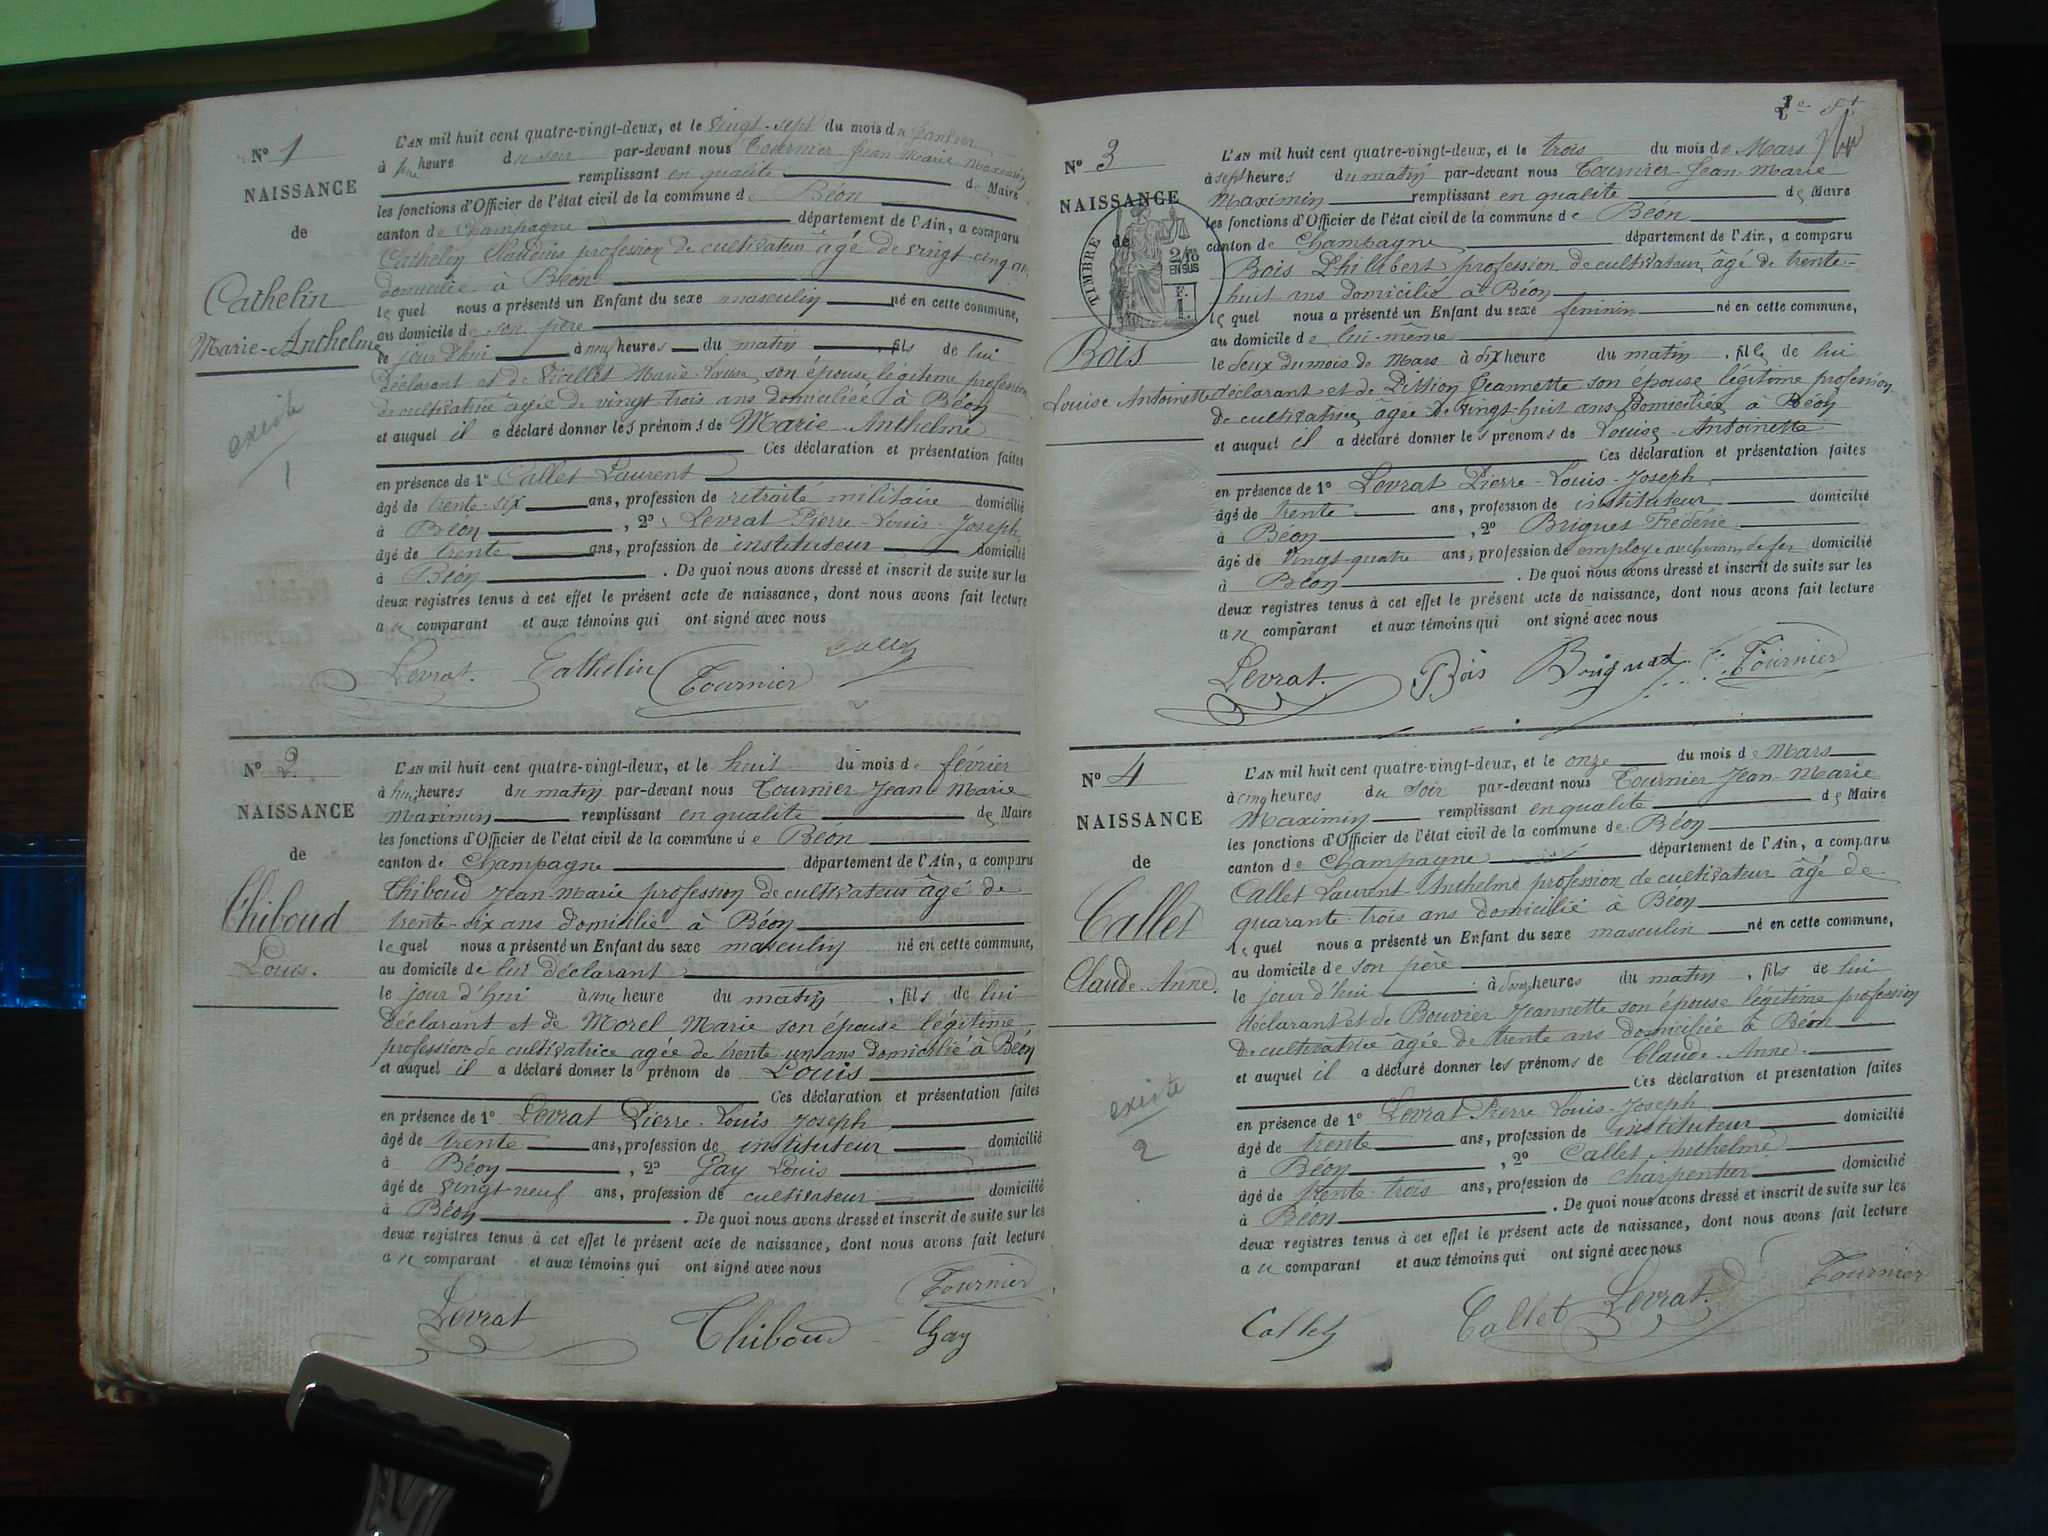 N° 1
NAISSANCE
de
Cathelin
Marie-Anthelme
existe
1
L'AN mil huit cent quatre-vingt-deux, et le vingt-sept du mois du Janvier
à une heure du soir par-devant nous Tournier Jean Marie Maximin
remplissant en qualité de Maire
les fonctions d'Officier de l'état civil de la commune de Béon
canton de Champagne département de l'Ain, a comparu
Cathelin Claudius profession de cultivateur âgé de vingt cinq ans
domicilié à Béon
lequel nous a présenté un Enfant du sexe masculin né en cette commune,
au domicile de son père
le jour d'hui à neuf heures du matin, fils de lui
déclarant et de Viallet Marie-Louise son épouse légitime profession
de cultivatrice âgée de vingt trois ans domiciliée à Béon
et auquel il a déclaré donner les prénoms de Marie Anthelme
Ces déclaration et présentation faites
en présence de 1° Callet Laurent
âgé de trente-six ans, profession de retraité militaire domicilié
à Béon, 2° Levrat Pierre-Louis-Joseph
âgé de trente ans, profession de instituteur domicilié
à Béon. De quoi nous avons dressé et inscrit de suite sur les
deux registres tenus à cet effet le présent acte de naissance, dont nous avons fait lecture
au comparant et aux témoins qui ont signé avec nous
Levrat. Cathelin Tournier Callet
N° 2.
NAISSANCE
de
Thiboud
Louis.
L'AN mil huit cent quatre-vingt-deux, et le huit du mois de février
à huit heures du matin par-devant nous Tournier Jean Marie
Maximin remplissant en qualité de Maire
les fonctions d'Officier de l'état civil de la commune de Béon
canton de Champagne département de l'Ain, a comparu
Thiboud Jean-Marie profession de cultivateur âgé de
trente-six ans domicilié à Béon
lequel nous a présenté un Enfant du sexe masculin né en cette commune,
au domicile de lui déclarant
le jour d'hui à une heure du matin, fils de lui
déclarant et de Morel Marie son épouse légitime
profession de cultivatrice agée de trente-un ans domicilié à Béon
et auquel il a déclaré donner le prénom de Louis
Ces déclaration et présentation faites
en présence de 1° Levrat Pierre-Louis Joseph
âgé de trente ans, profession de instituteur domicilié
à Béon, 2° Gay Louis
âgé de vingt-neuf ans, profession de cultivateur domicilié
à Béon. De quoi nous avons dressé et inscrit de suite sur les
deux registres tenus à cet effet le présent acte de naissance, dont nous avons fait lecture
au comparant et aux témoins qui ont signé avec nous
Tournier
Levrat Thiboud Gay
N° 3
NAISSANCE
de
TIMBRE 2/10 EN SUS F. 1
Bois
Louise Antoinette
L'AN mil huit cent quatre-vingt-deux, et le trois du mois de Mars
à sept heures du matin par-devant nous Tournier Jean Marie
Maximin remplissant en qualité de Maire
les fonctions d'Officier de l'état civil de la commune de Béon
canton de Champagne département de l'Ain, a comparu
Bois Philibert profession de cultivateur âgé de trente-
huit ans domicilié à Béon
lequel nous a présenté un Enfant du sexe féminin né en cette commune,
au domicile de lui-même
le deux du mois de Mars à dix heure du matin, fille de lui
déclarant et de Pittion Jeannette son épouse légitime profession
de cultivatrice, âgée de vingt-huit ans domiciliée à Béon
et auquel il a déclaré donner les prenoms de Louise-Antoinette
Ces déclaration et présentation faites
en présence de 1° Levrat Pierre-Louis-Joseph
âgé de trente ans, profession de instituteur domicilié
à Béon, 2° Briguet Frédéric
âgé de vingt-quatre ans, profession de employé au chemin de fer domicilié
à Béon. De quoi nous avons dressé et inscrit de suite sur les
deux registres tenus à cet effet le présent acte de naissance, dont nous avons fait lecture
au comparant et aux témoins qui ont signé avec nous
Levrat. Bois Briguet Tournier
N° 4
NAISSANCE
de
Callet
Claude-Anne.
existe
2
L'AN mil huit cent quatre-vingt-deux, et le onze du mois de Mars
à cinq heures du soir par-devant nous Tournier Jean-Marie
Maximin remplissant en qualité de Maire
les fonctions d'Officier de l'état civil de la commune de Béon
canton de Champagne département de l'Ain, a comparu
Callet Laurent-Anthelme profession de cultivateur âgé de
quarante-trois ans domicilié à Béon
lequel nous a présenté un Enfant du sexe masculin né en cette commune,
au domicile de son père
le jour d'hui à heures du matin, fils de lui
déclarant et de Bouvier Jeannette son épouse légitime profession
de cultivatrice âgée de trente ans domiciliée à Béon
et auquel il a déclaré donner les prénoms de Claude-Anne.
Ces déclaration et présentation faites
en présence de 1° Levrat Pierre-Louis-Joseph
âgé de trente ans, profession de instituteur domicilié
à Béon, 2° Callet Anthelme
âgé de trente-trois ans, profession de charpentier domicilié
à Béon. De quoi nous avons dressé et inscrit de suite sur les
deux registres tenus à cet effet le présent acte de naissance, dont nous avons fait lecture
au comparant et aux témoins qui ont signé avec nous
Callet Callet Levrat. Tournier